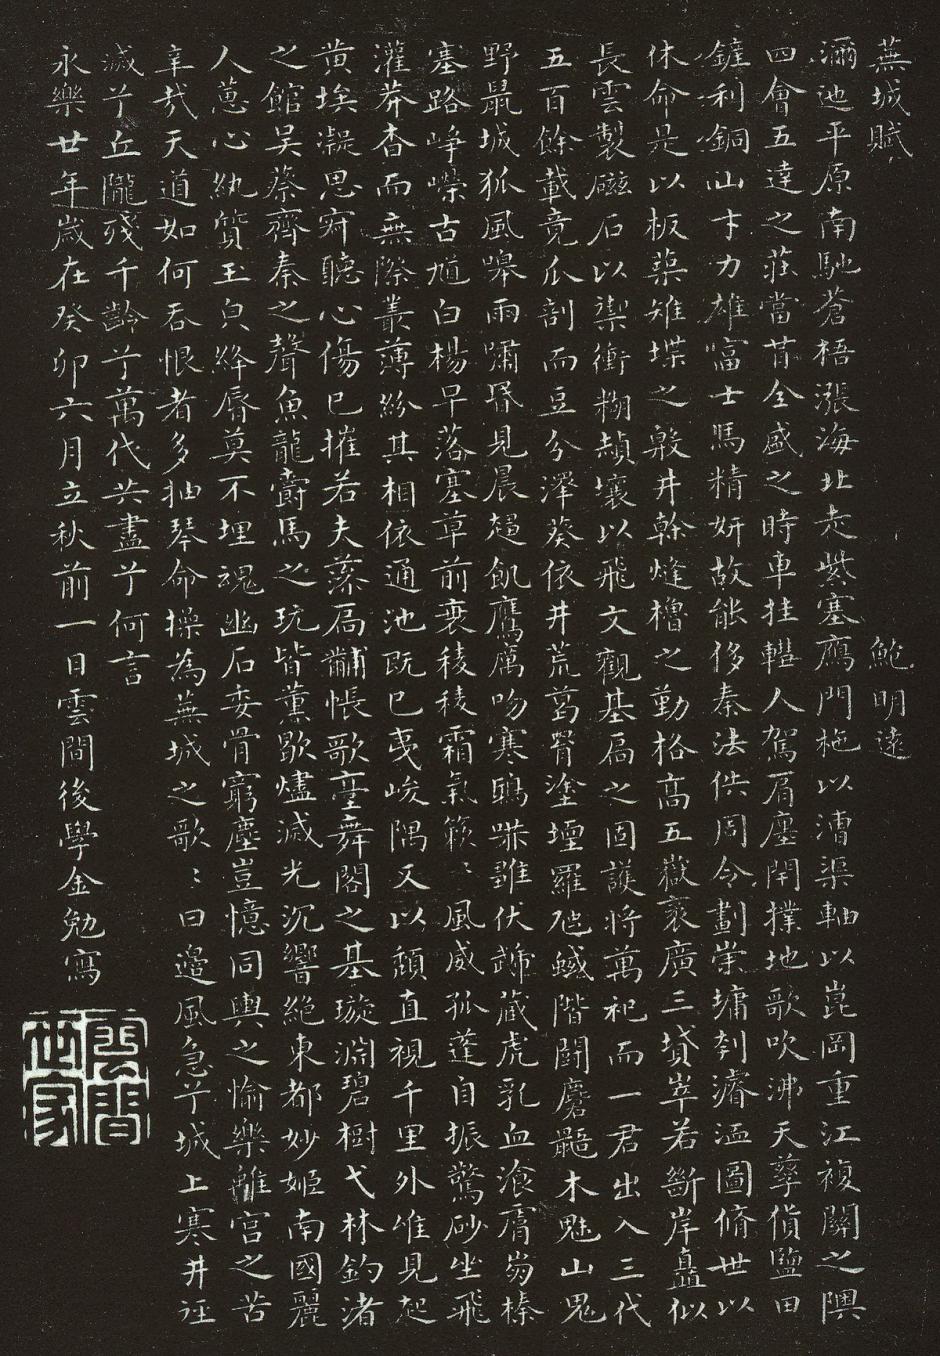 蕪城賦 鮑明遠
瀰迆平原南馳蒼梧漲海北走紫塞鴈門柂以漕渠軸以崑岡重江複關之隩
四會五達之莊當昔全盛之時車挂轊人駕肩廛閈撲地歌吹沸天孳貨鹽田
鏟利銅山才力雄富士馬精妍故能侈秦法佚周令劃崇墉刳濬洫圖脩世以
休命是以板築雉堞之殷井幹烽櫓之勤格高五嶽袤廣三墳崒若斷岸矗似
長雲製磁石以禦衝糊赬壤以飛文觀基扃之固護將萬祀而一君出入三代
五百餘載竟瓜剖而豆分澤葵依井荒葛罥塗壇羅虺蜮階鬪麏鼯木魅山鬼
野鼠城狐風嘷雨嘯昏見晨趨飢鷹厲吻寒鴟嚇雛伏虣藏虎乳血飡膚崩榛
塞路崢嶸古馗白楊早落塞草前衰稜稜霜氣簌〻風威孤蓬自振驚砂坐飛
灌莽杳而無際叢薄紛其相依通池既已夷峻隅又以頹直視千里外惟見起
黃埃凝思寂聽心傷已摧若夫藻扃黼帳歌臺舞閣之基璇淵碧樹弋林釣渚
之館吳蔡齊秦之聲魚龍爵馬之玩皆薰歇燼滅光沉響絕東都妙姬南國麗
人蕙心紈質玉皃絳脣莫不埋魂幽石委骨窮塵豈憶同輿之愉樂離宮之苦
辛哉天道如何吞恨者多抽琴命操為蕪城之歌〻曰邊風急兮城上寒井逕
滅兮丘隴殘千齡兮萬代共盡兮何言
永樂廿年歲在癸卯六月立秋前一日雲間後學金勉寫